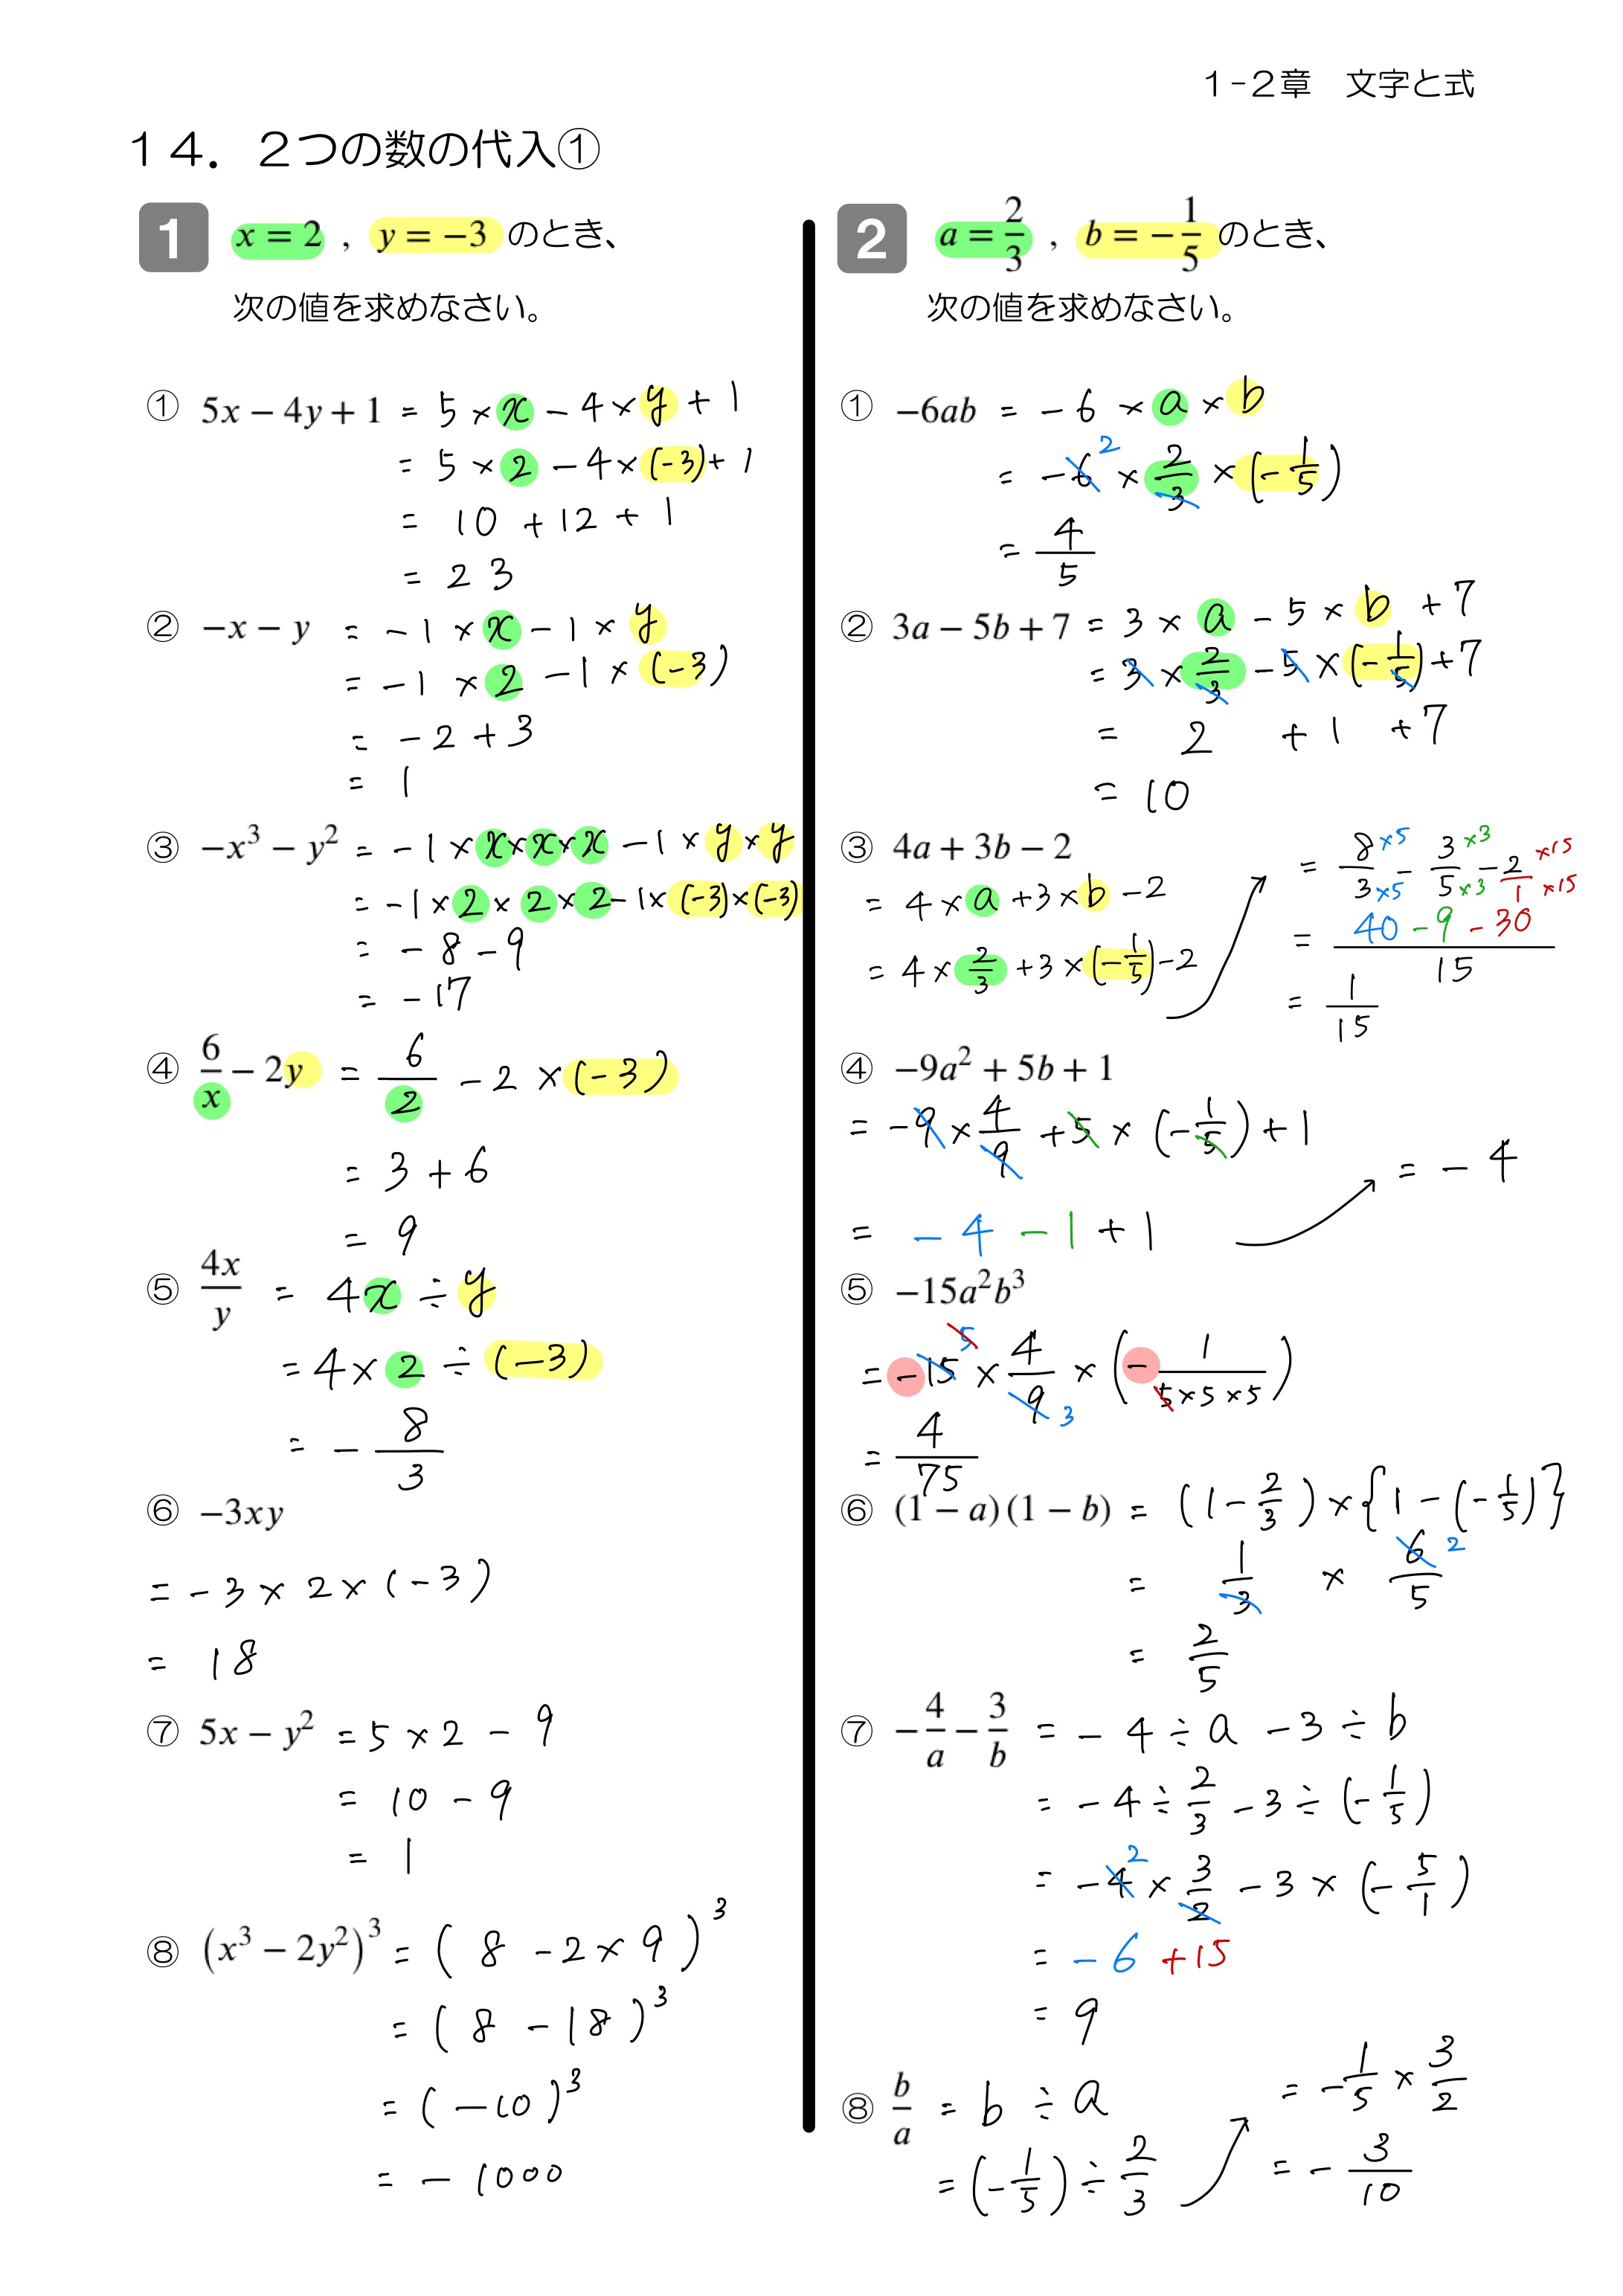 １-２章　文字と式
１４．２つの数の代入①
1 x = 2 , y = −3 のとき、
次の値を求めなさい。
① 5x − 4y + 1 = 5 × x − 4 × y + 1
= 5 × 2 − 4 × (−3) + 1
= 10 + 12 + 1
= 23
② −x − y = −1 × x − 1 × y
= −1 × 2 − 1 × (−3)
= −2 + 3
= 1
③ −x³ − y² = −1 × x × x × x − 1 × y × y
= −1 × 2 × 2 × 2 − 1 × (−3) × (−3)
= −8 − 9
= −17
④ 6/x − 2y = 6/2 − 2 × (−3)
= 3 + 6
= 9
⑤ 4x/y = 4x ÷ y
= 4 × 2 ÷ (−3)
= − 8/3
⑥ −3xy
= −3 × 2 × (−3)
= 18
⑦ 5x − y² = 5 × 2 − 9
= 10 − 9
= 1
⑧ (x³ − 2y²)³ = (8 − 2 × 9)³
= (8 − 18)³
= (−10)³
= −1000
2 a = 2/3 , b = − 1/5 のとき、
次の値を求めなさい。
① −6ab = −6 × a × b
= −6 2 × 2/3 × (− 1/5)
= 4/5
② 3a − 5b + 7 = 3 × a − 5 × b + 7
= 3 × 2/3 − 5 × (− 1/5) + 7
= 2 + 1 + 7
= 10
③ 4a + 3b − 2
= 4 × a + 3 × b − 2
= 4 × 2/3 + 3 × (− 1/5) − 2
= 8×5/3×5 − 3×3/5×3 − 2×15/1×15
= 40 − 9 − 30/15
= 1/15
④ −9a² + 5b + 1
= −9 × 4/9 + 5 × (− 1/5) + 1
= −4 − 1 + 1
= −4
⑤ −15a²b³
= −15 5 × 4/9 3 × (− 1/5×5×5)
= 4/75
⑥ (1 − a)(1 − b) = (1 − 2/3) × {1 − (− 1/5)}
= 1/3 × 6 2/5
= 2/5
⑦ − 4/a − 3/b = −4 ÷ a − 3 ÷ b
= −4 ÷ 2/3 − 3 ÷ (− 1/5)
= −4 2 × 3/2 − 3 × (− 5/1)
= −6 + 15
= 9
⑧ b/a = b ÷ a
= (− 1/5) ÷ 2/3
= − 1/5 × 3/2
= − 3/10